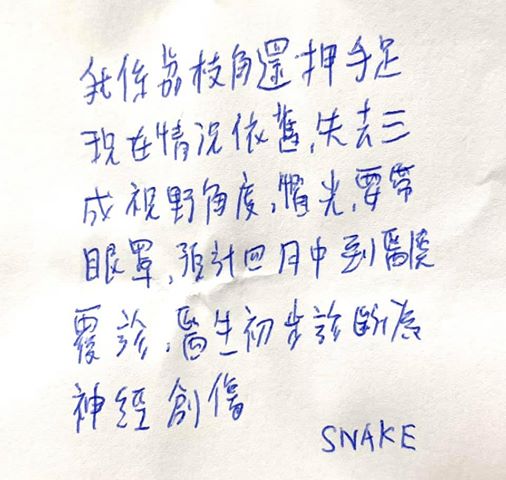 我係荔枝角還押手足
現在情況依舊,失去三
成視野角度,懼光,要帶
眼罩,預計四月中到醫院
覆診,醫生初步診斷為
神經創傷
SNAKE